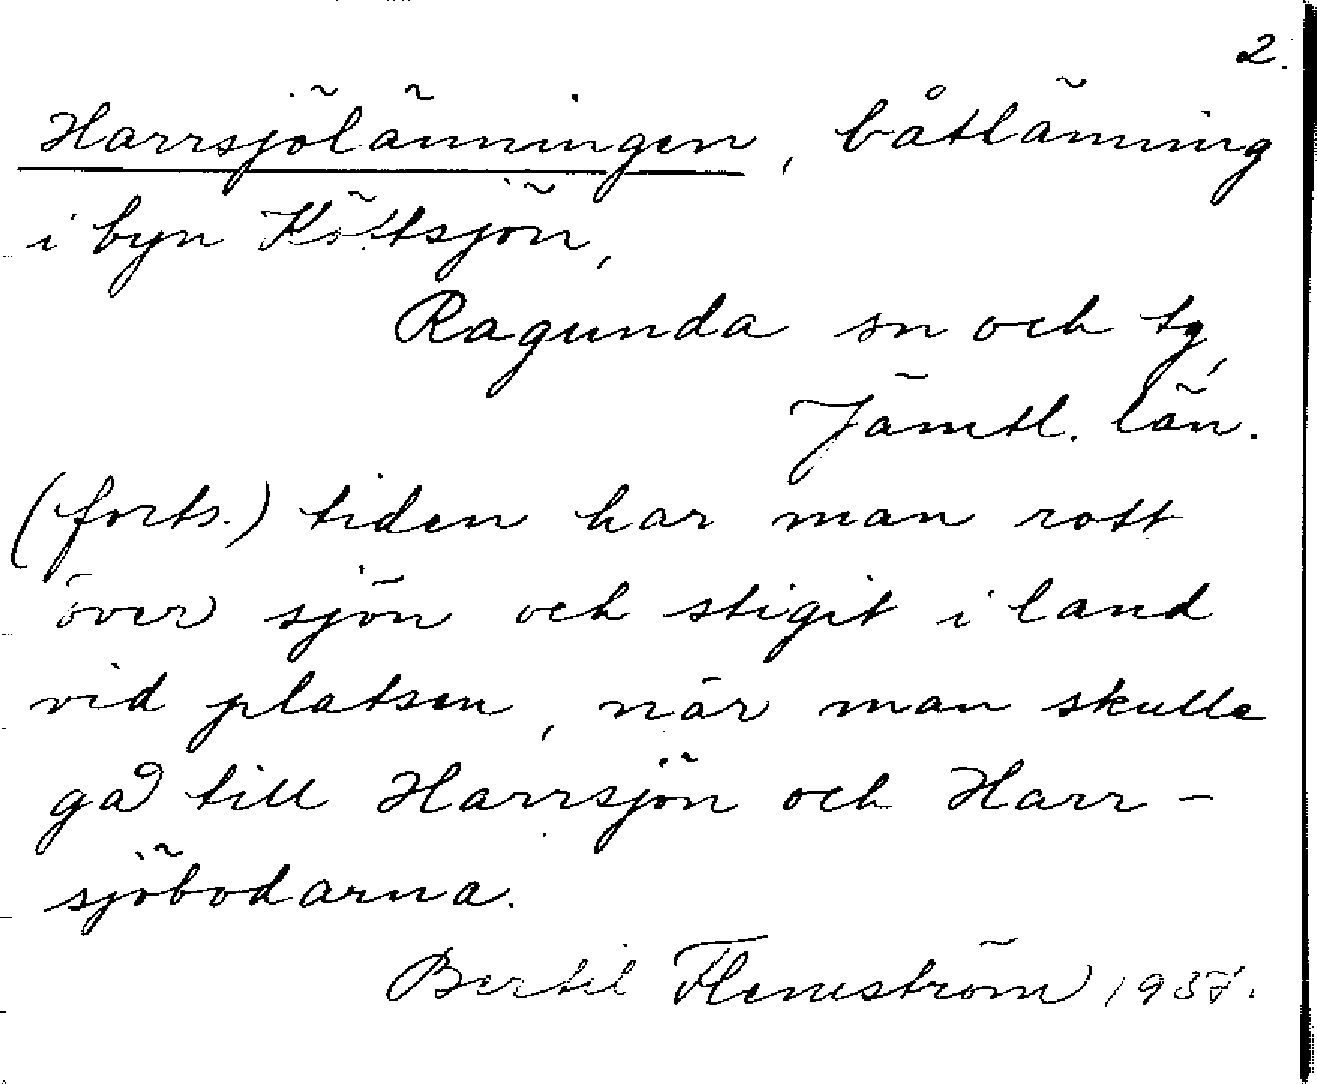 2.
Harrsjölänningen, båtlänning
i byn Köttsjön,
Ragunda sn och tg,
Jämtl. län.
(forts.) tiden har man rott
över sjön och stigit i land
vid platsen, när man skulle
gå till Harrsjön och Harr-
sjöbodarna.
Bertil Flemström 1957.